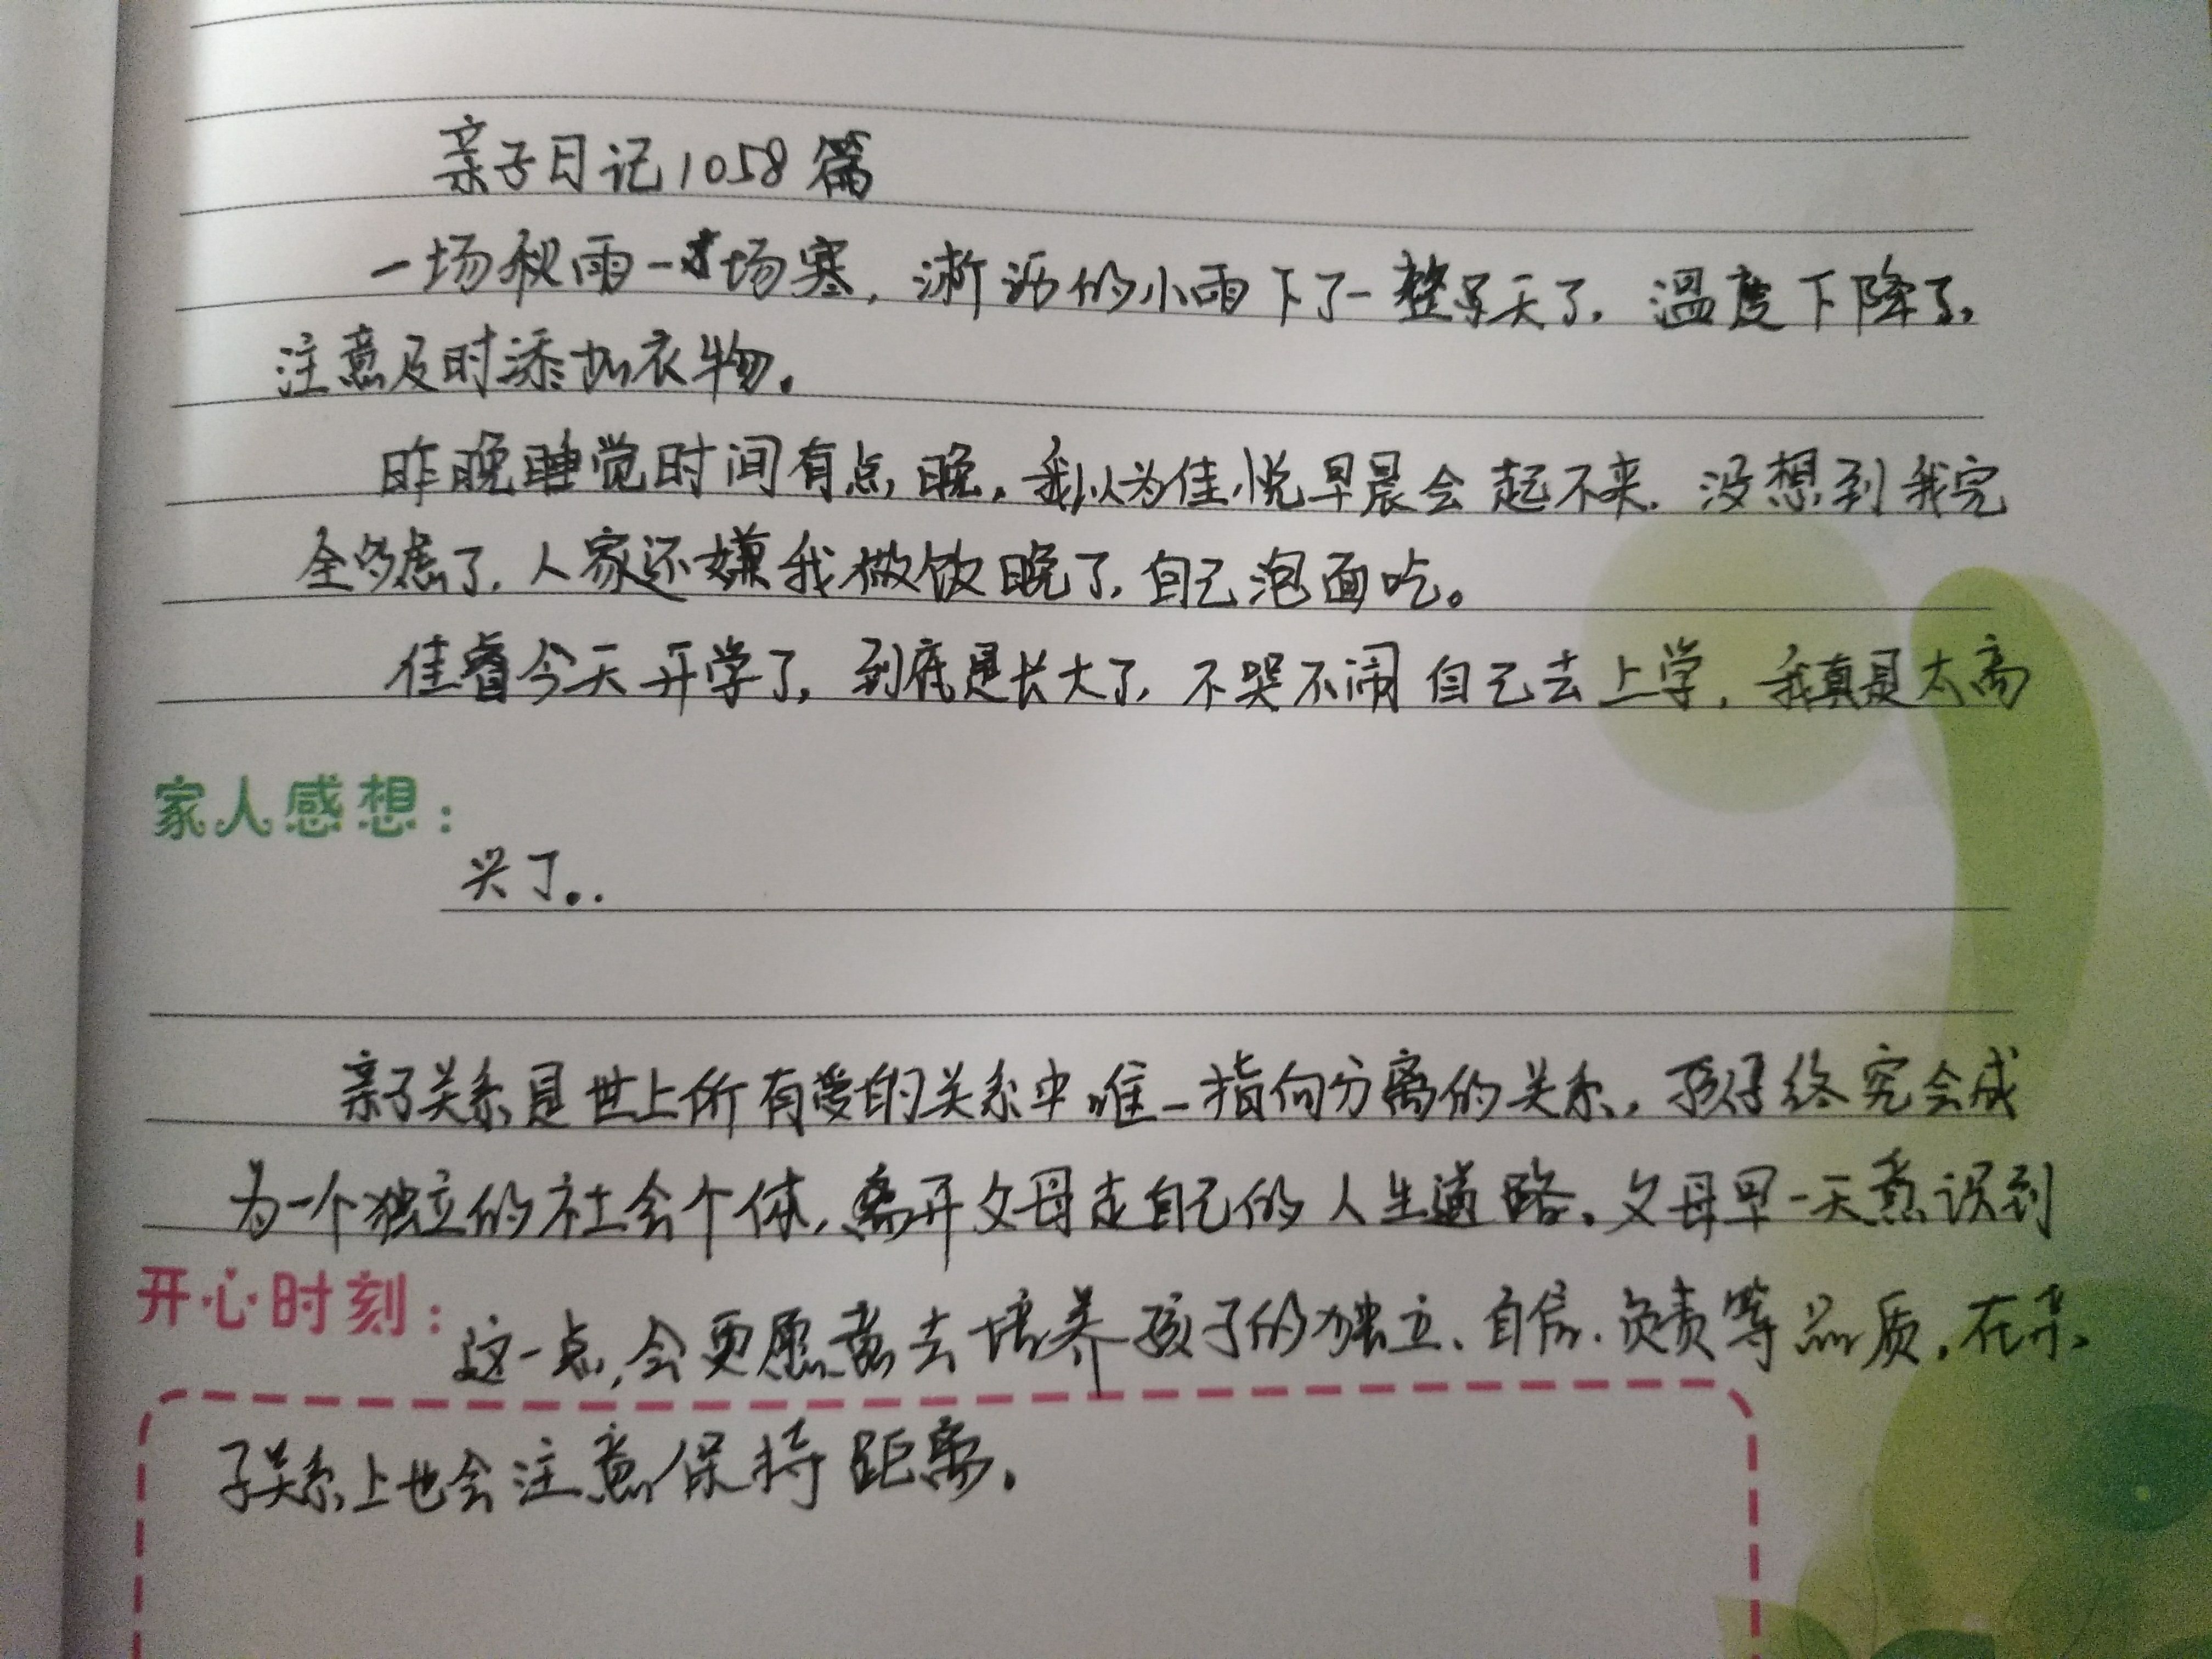 亲子日记1058篇
一场秋雨一场寒，淅沥的小雨下了一整天了。温度下降了，
注意及时添加衣物。
昨晚睡觉时间有点晚，我以为佳悦早晨会起不来，没想到我完
全多虑了，人家还嫌我做饭晚了，自己泡面吃。
佳睿今天开学了，到底是长大了，不哭不闹自己去上学，我真是太高
家人感想：
兴了。.
亲子关系是世上所有爱的关系中唯一指向分离的关系，孩子终究会成
为一个独立的社会个体，离开父母走自己的人生道路。父母早一天意识到
开心时刻：
这一点，会更愿意去培养孩子的独立、自信、负责等品质，在亲
子关系上也会注意保持距离。